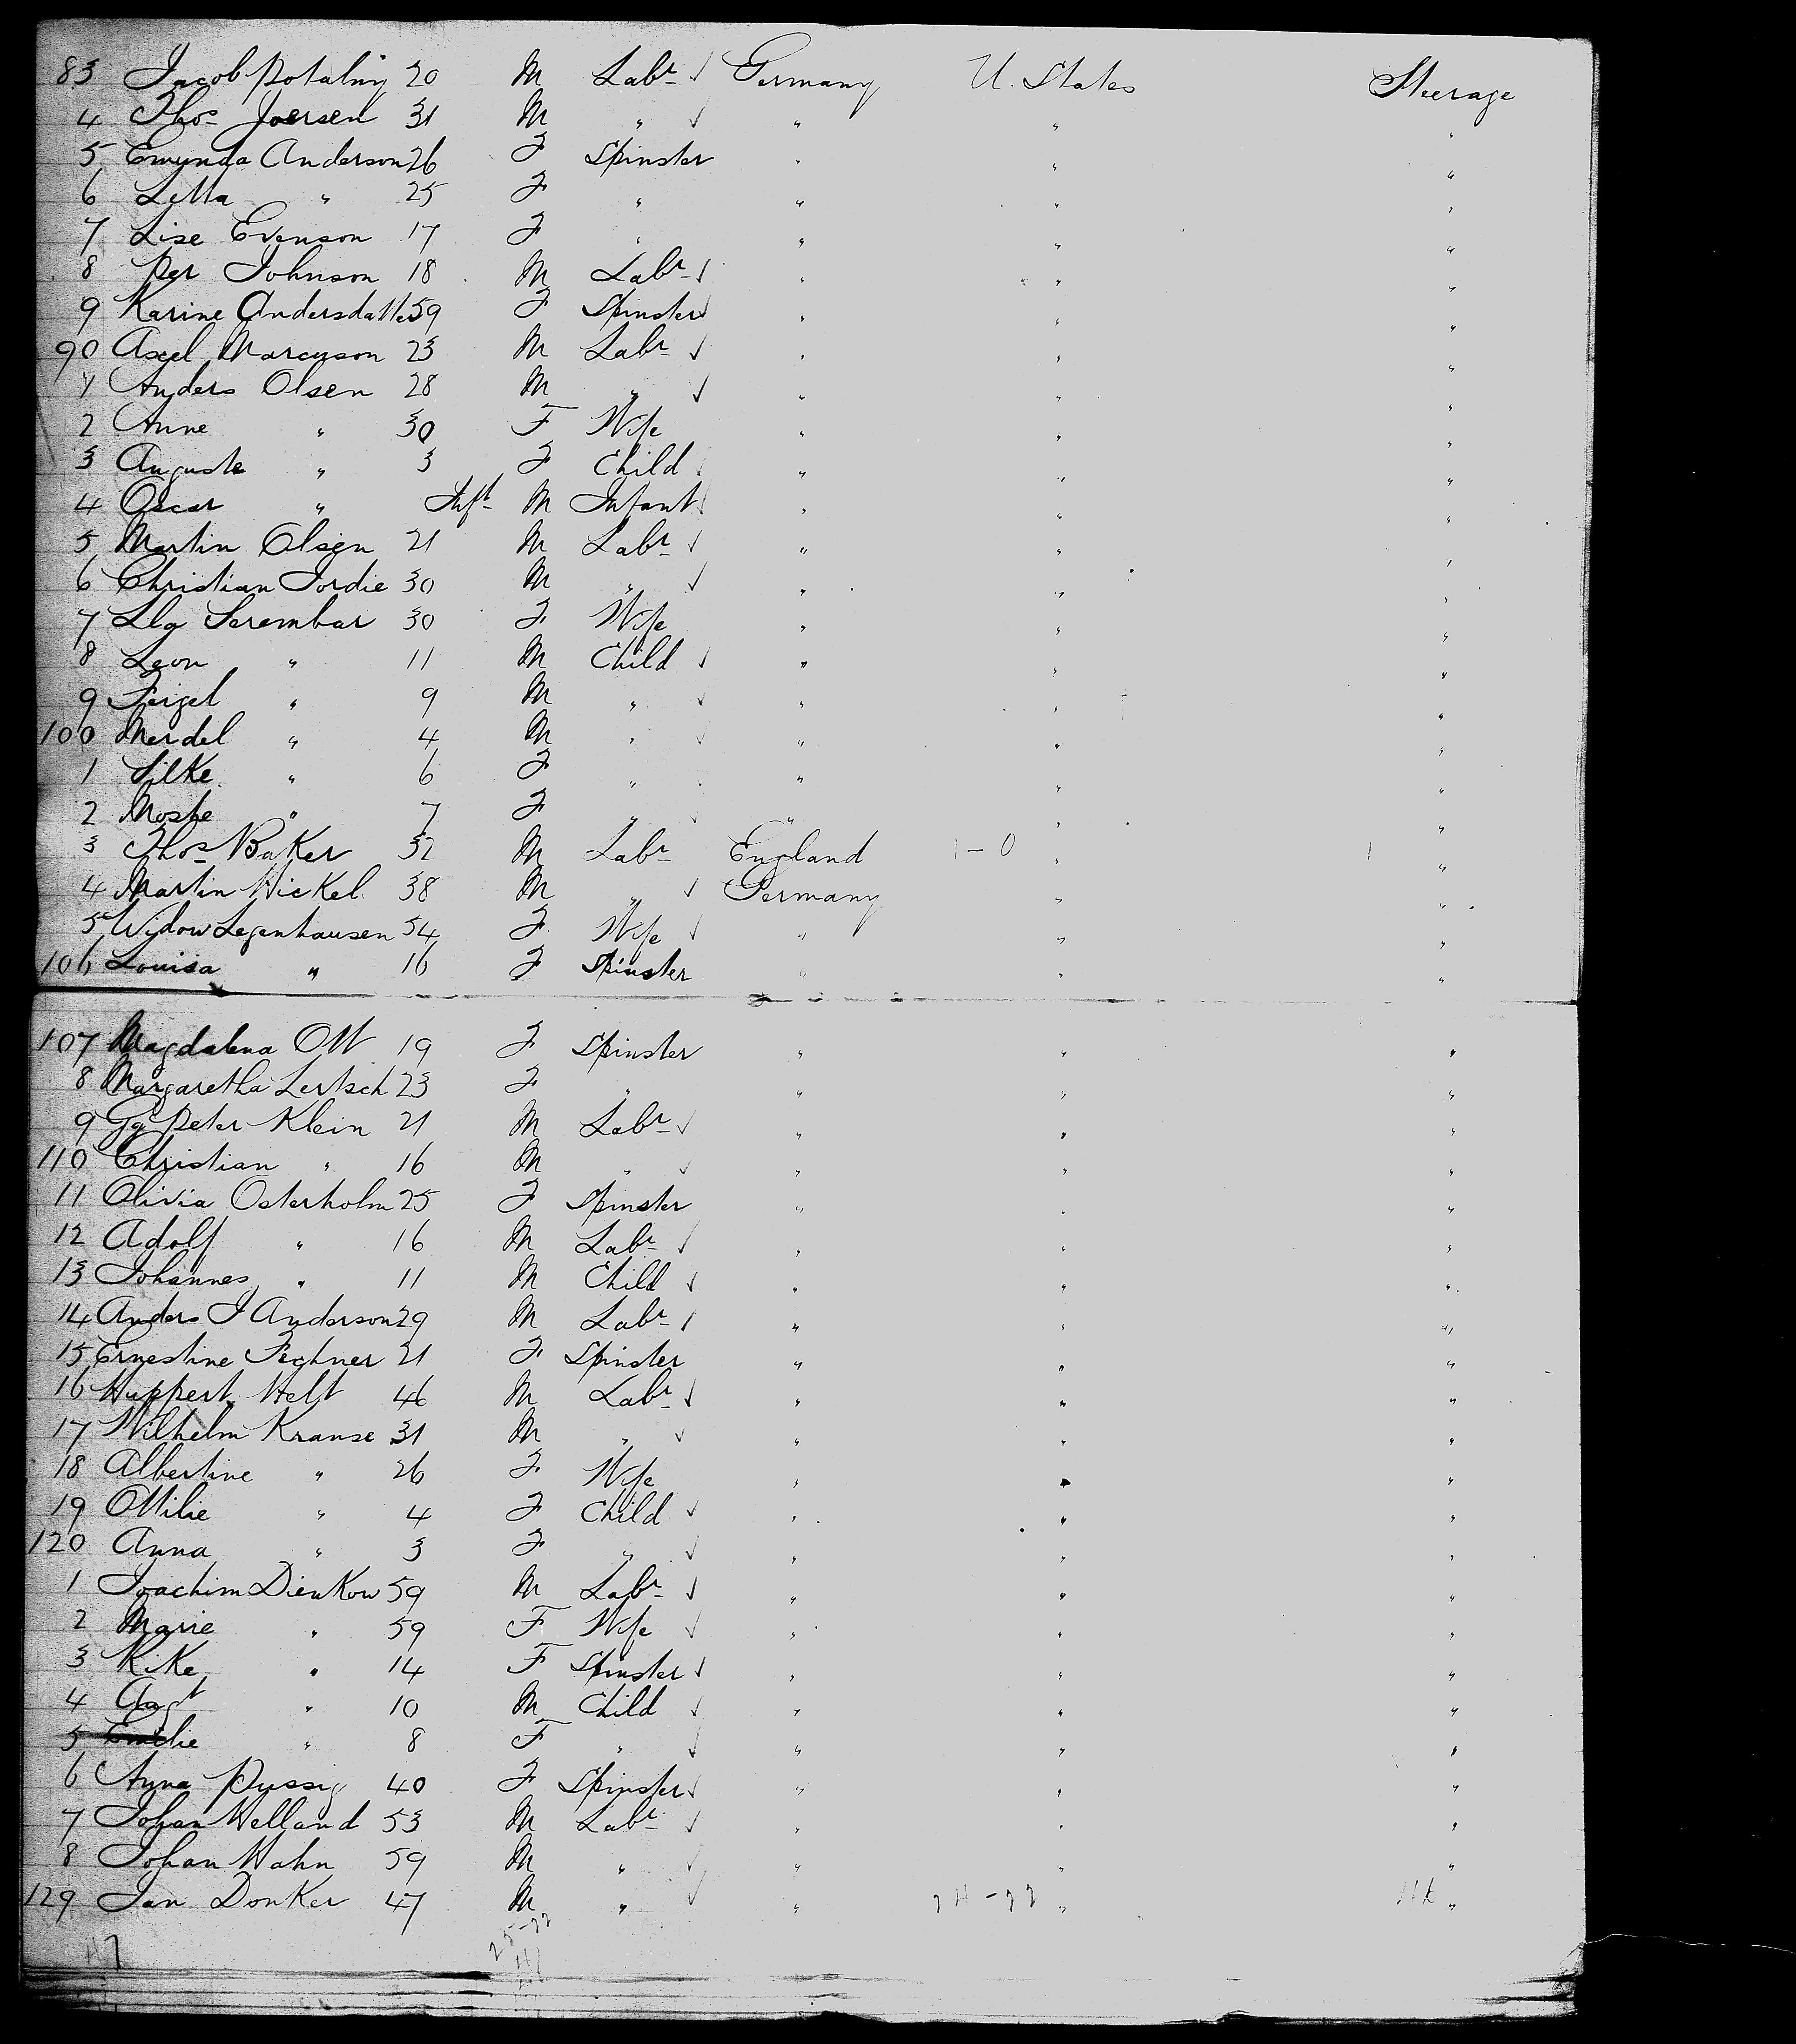 83 Jacob Potalny 20 M Labr ✓ Germany U. States Steerage
4 Thos Joersen 31 M " ✓ " " "
5 Emynda Anderson 26 F Spinster " " "
6 Letta " 25 F " " " "
7 Lise Evenson 17 F " " " "
8 Per Johnson 18 M Labr ✓ " " "
9 Karine Andersdatter 59 F Spinster ✓ " " "
90 Axel Marcuson 23 M Labr ✓ " " "
1 Anders Olsen 28 M " ✓ " " "
2 Anne " 30 F Wife " " "
3 Auguste " 3 F Child ✓ " " "
4 Oscar " Inft M Infant ✓ " " "
5 Martin Olsen 21 M Labr ✓ " " "
6 Christian Jordie 30 M " ✓ " " "
7 Lla Serembar 30 F Wife " " "
8 Leon " 11 M Child ✓ " " "
9 Feigel " 9 M " ✓ " " "
100 Merdel " 4 M " ✓ " " "
1 Silke " 6 F " " " "
2 Moshe " 7 F " ✓ " " "
3 Thos Baker 32 M Labr England 1-0 " 1 "
4 Martin Nickel 38 M " ✓ Germany " "
5 Widow Legenhausen 54 F Wife ✓ " " "
106 Louisa " 16 F Spinster " " "
107 Magdalena Ott 19 F Spinster " " "
8 Margaretha Lertsch 23 F " " " "
9 Gg Peter Klein 21 M Labr ✓ " " "
110 Christian " 16 M " ✓ " " "
11 Olivia Osterholm 25 F Spinster " " "
12 Adolf " 16 M Labr ✓ " " "
13 Johannes " 11 M Child ✓ " " "
14 Anders J Anderson 29 M Labr ✓ " " "
15 Ernestine Fechner 21 F Spinster " " "
16 Huppert Helt 46 M Labr ✓ " " "
17 Wilhelm Krause 31 M " ✓ " " "
18 Albertine " 26 F Wife " " "
19 Ottilie " 4 F Child ✓ " " "
120 Anna " 3 F " ✓ " " "
1 Joachim Dienkow 59 M Labr ✓ " " "
2 Marie " 59 F Wife ✓ " " "
3 Rike " 14 F Spinster ✓ " " "
4 Augt " 10 M Child ✓ " " "
5 Emilie " 8 F " ✓ " " "
6 Anna Pussig 40 F Spinster ✓ " " "
7 Johan Welland 53 M Labr ✓ " " "
8 Johan Hahn 59 M " ✓ " " "
129 Jan Donker 47 M " ✓ " 24-22 " "
47 25-22